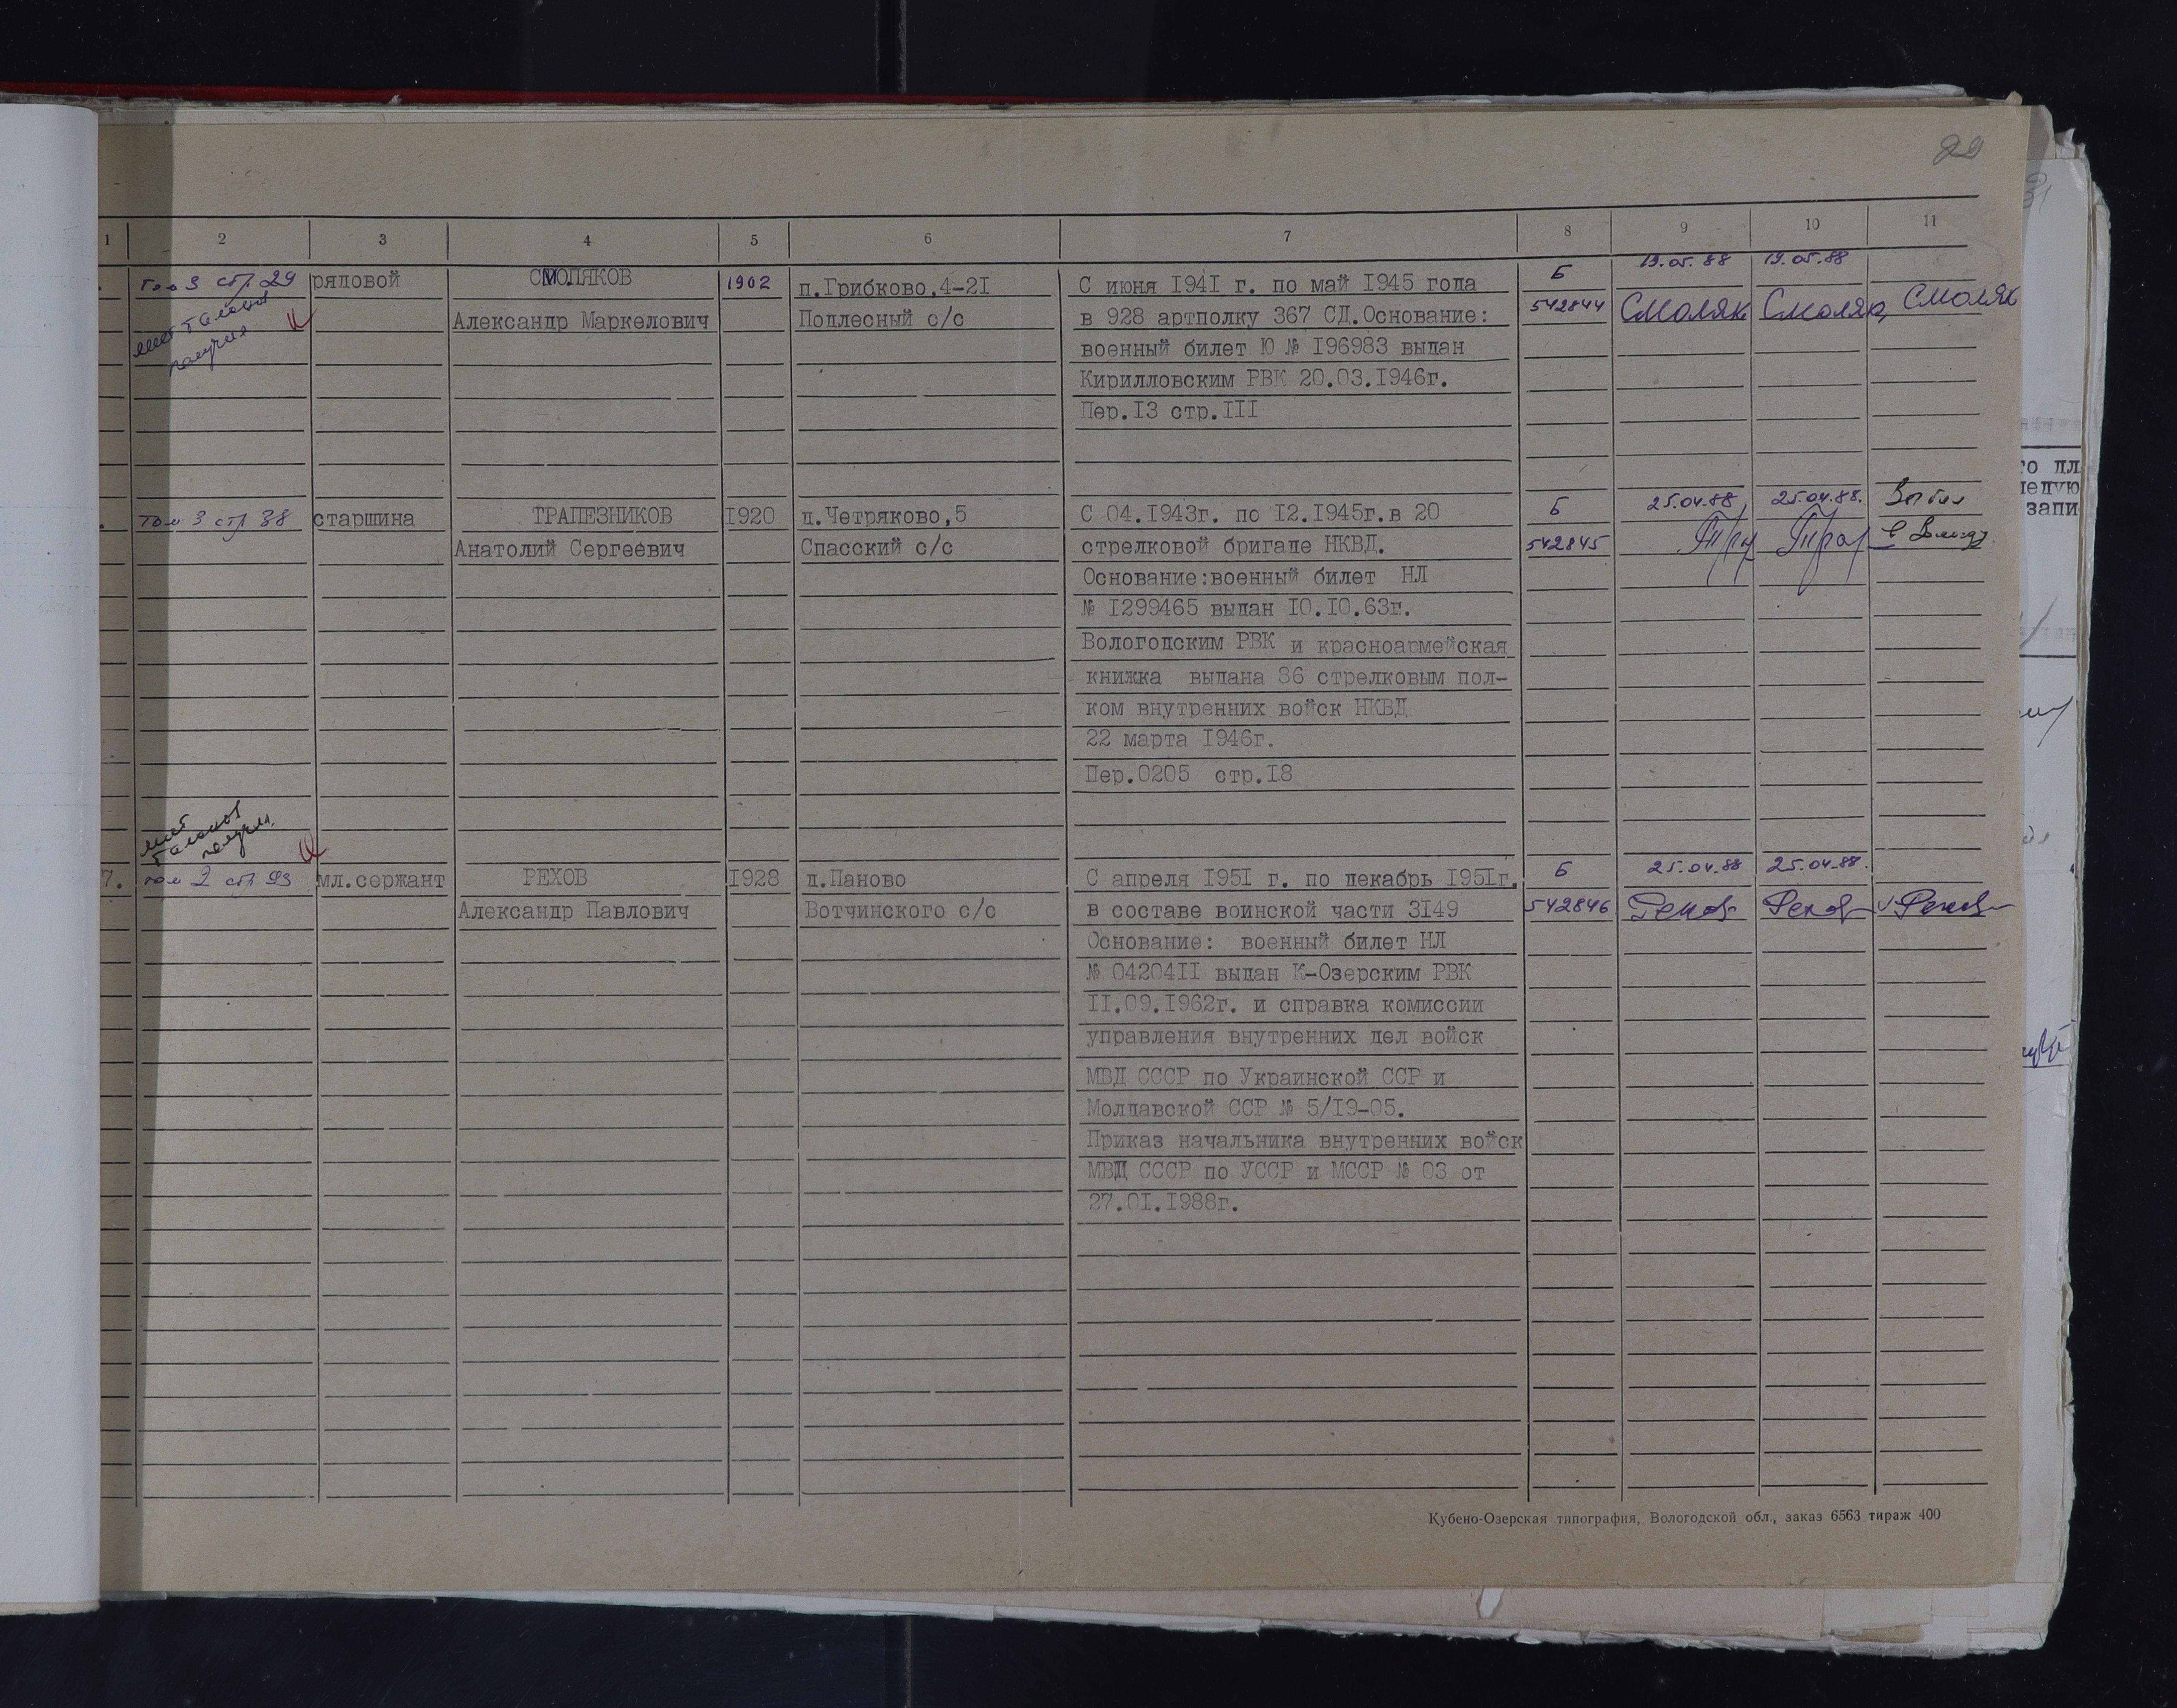 1 2 3 4 5 6 7 8 9 10 11
том 3 стр 29 рядовой СМОЛЯКОВ 1902 п.Грибково,4-2I С июня I94I г. по май I945 года Б 19.05.88 19.05.88
Александр Маркелович Подлесный с/с в 928 артполку 367 СД.Основание: 542844 Смоляк Смоляк Смоляк
нет талонов
получил
военный билет Ю № I96983 выдан
Кирилловским РВК 20.03.I946г.
Пер.I3 стр.III
том 3 стр 38 старшина ТРАПЕЗНИКОВ I920 д.Четряково,5 С 04.I943г. по I2.I945г.в 20 Б 25.04.88 25.04.88. Выбыл
Анатолий Сергеевич Спасский с/с стрелковой бригаде НКВД. 542845 в Вологду
Основание:военный билет НЛ
№ I299465 выдан I0.I0.63г.
Вологодским РВК и красноармейская
книжка выдана 36 стрелковым пол-
ком внутренних войск НКВД
22 марта I946г.
Пер.0205 стр.I8
нет
талонов
получил
7. том 2 стр 93 мл.сержант РЕХОВ I928 д.Паново С апреля I95I г. по декабрь I95Iг. Б 25.04.88 25.04.88.
Александр Павлович Вотчинского с/с в составе воинской части 3I49 542846 Рехов Рехов Рехов
Основание: военный билет НЛ
№ 04204II выдан К-Озерским РВК
II.09.I962г. и справка комиссии
управления внутренних дел войск
МВД СССР по Украинской ССР и
Молдавской ССР № 5/I9-05.
Приказ начальника внутренних войск
МВД СССР по УССР и МССР № 03 от
27.0I.I988г.
Кубено-Озерская типография, Вологодской обл., заказ 6563 тираж 400